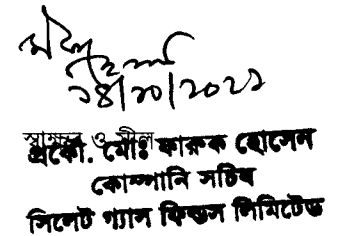 ২৪/১০/২০২১
স্বাক্ষর ও সীল
প্রকৌ. মোঃ ফারুক হোসেন
কোম্পানি সচিব
সিলেট গ্যাস ফিল্ডস লিমিটেড